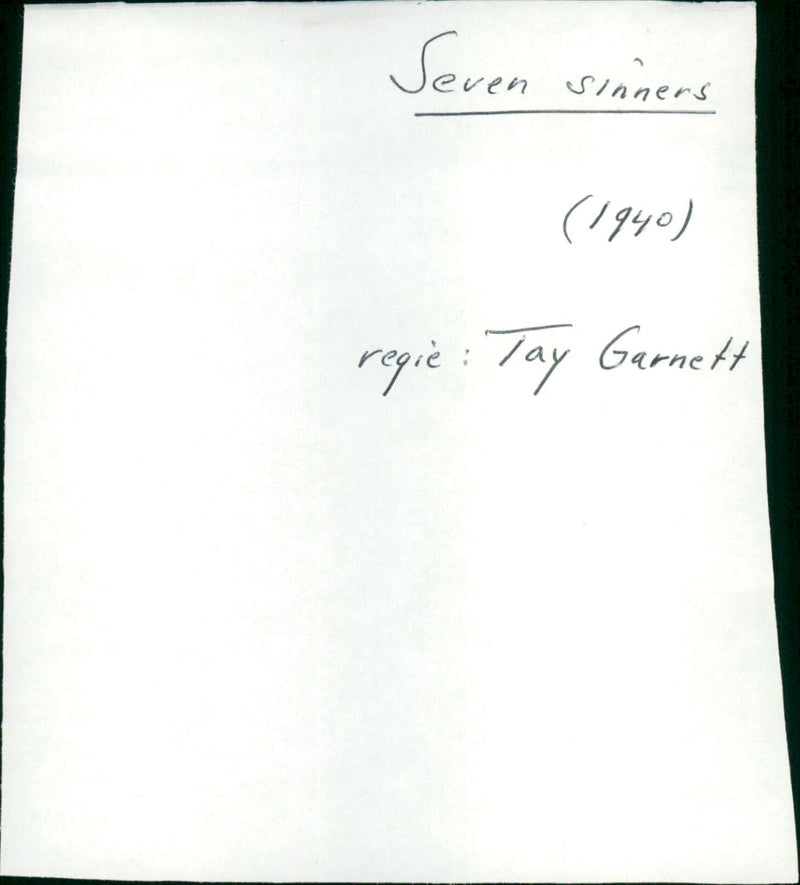 Seven sinners
(1940)
regie: Tay Garnett